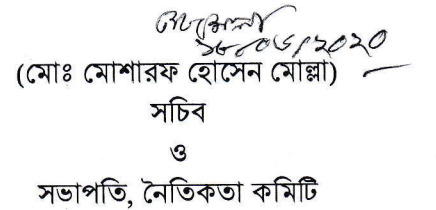 ১৮/০৬/২০২০
(মোঃ মোশারফ হোসেন মোল্লা)
সচিব
ও
সভাপতি, নৈতিকতা কমিটি